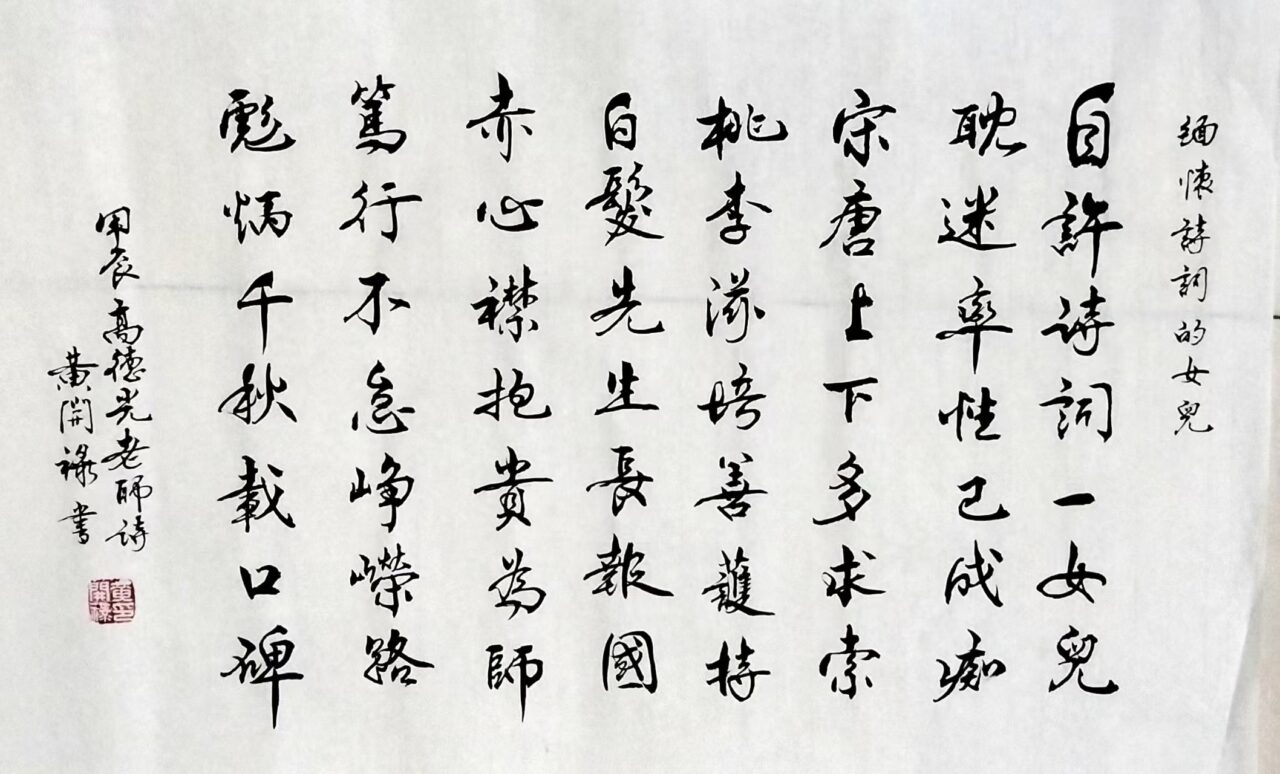 緬懷詩詞的女兒
自許詩詞一女兒
耽迷率性已成痴
宋唐上下多求索
桃李滋培善護持
白髮先生長報國
赤心襟抱貴為師
篤行不怠崢嶸路
彪炳千秋載口碑
甲辰高德光老師詩
黃開祿書
黃開祿印